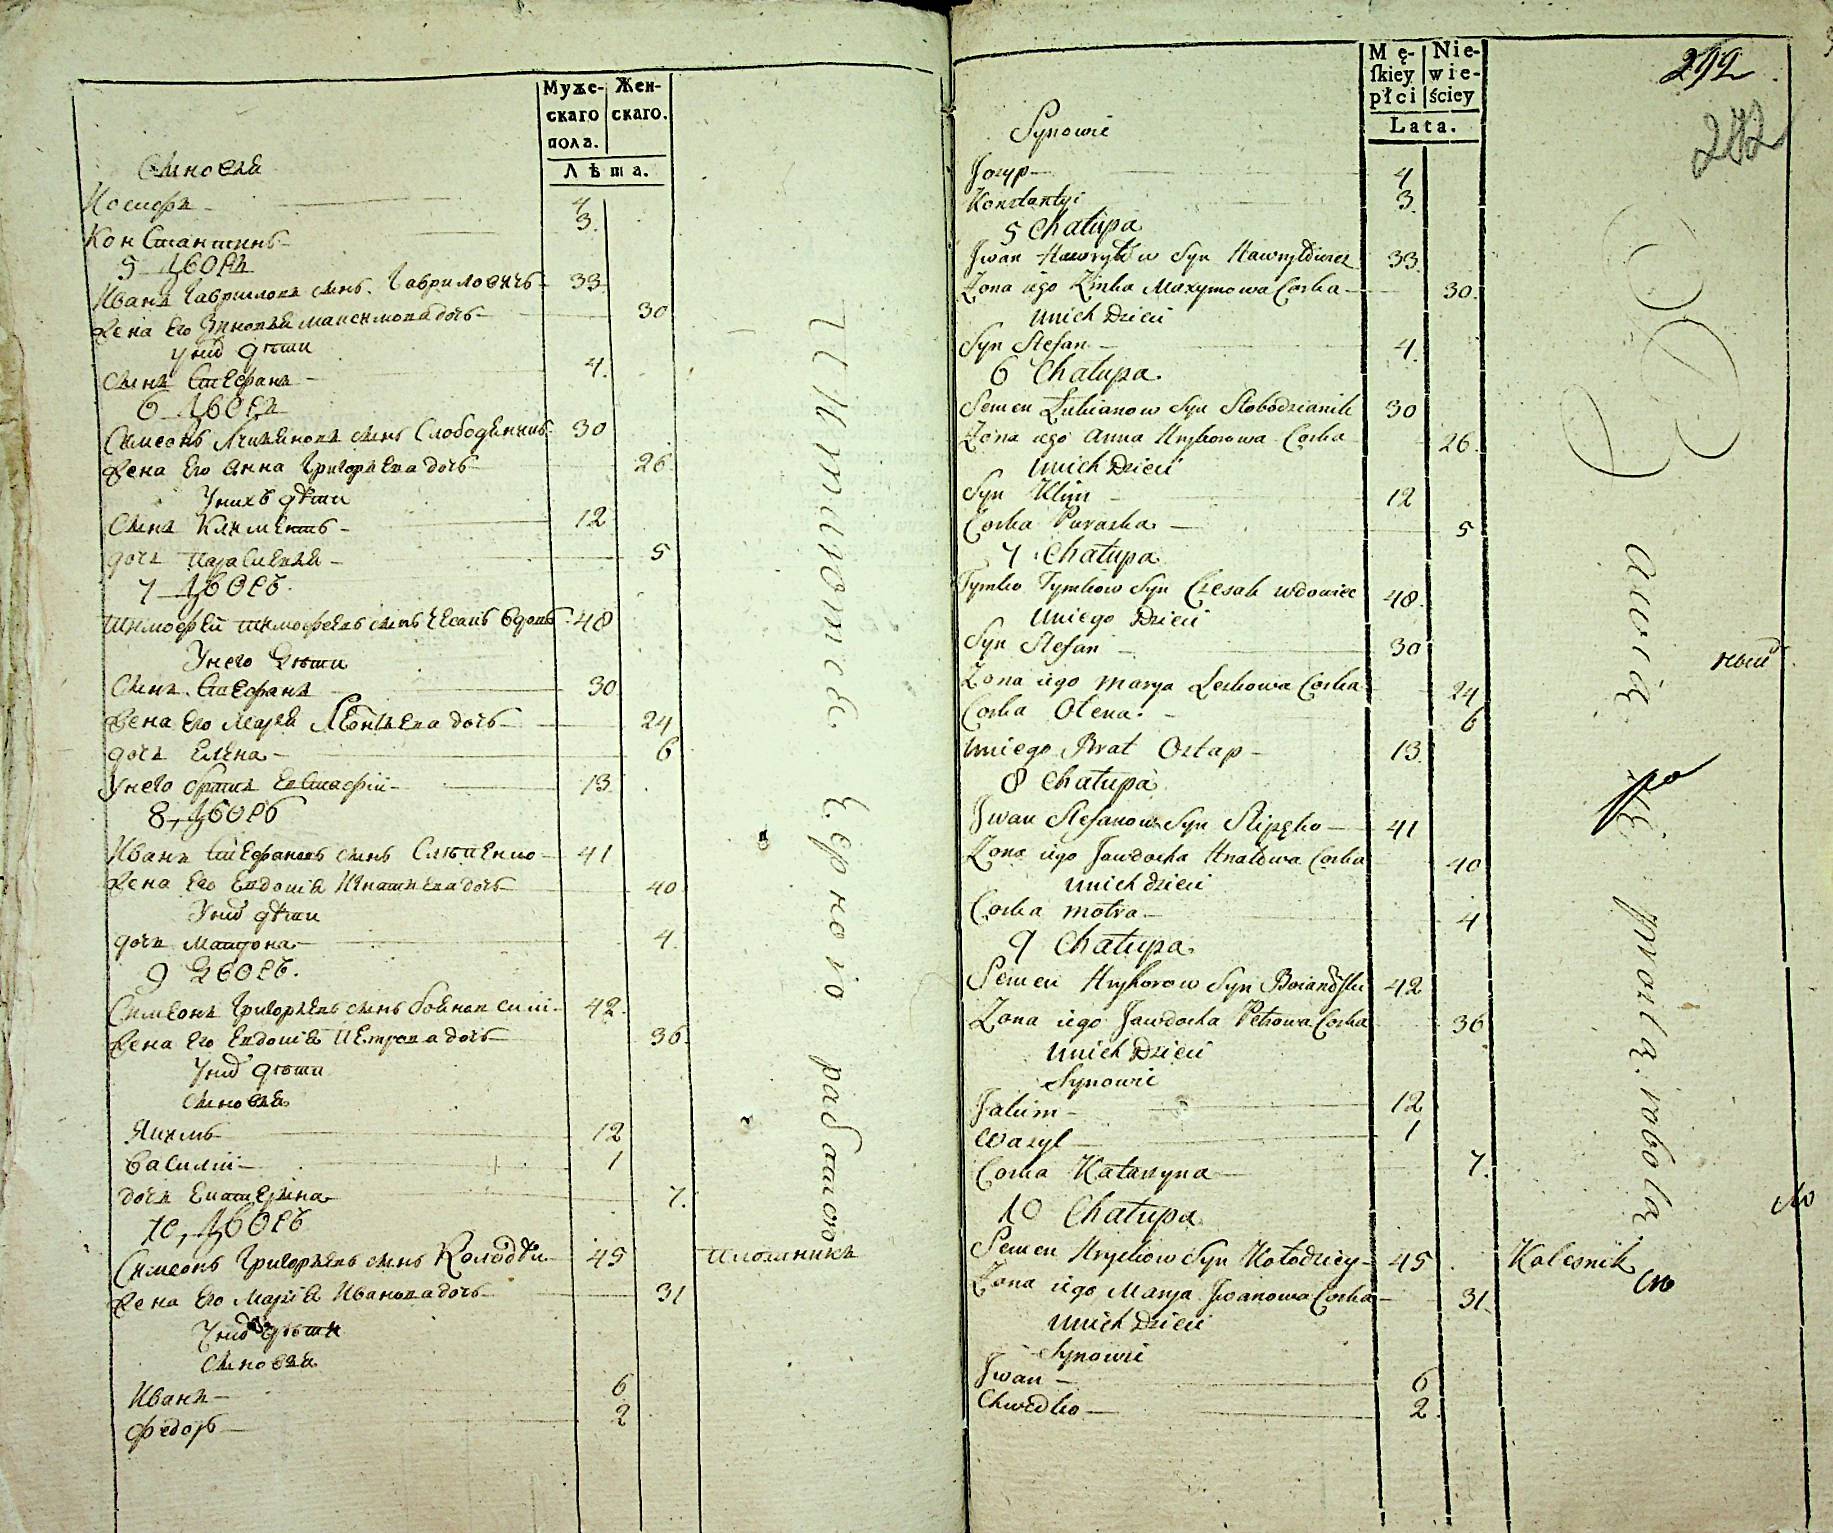 Муже-
скаго
пола.
Жен-
скаго.
Лѣта.
Сыновья
Иосифъ 4
Константинъ 3.
5 Дворъ
Иванъ Гавриловъ сынъ Гавриловичъ 33
Жена Его Зиновья Максимова дочь 30
У них дѣти
Сынъ Стефанъ 4.
6 Дворъ
Симеонъ сынъ Слободяникъ 30
Жена Его Анна Григорьева дочь 26.
У нихъ дѣти
Сынъ Климентъ 12
дочь Параскевия 5
7 Дворъ
Тимофей Тимофеевъ сынъ Чесакъ вдовъ 48
У него дѣти
Сынъ Стефанъ 30
Жена Его Марья Леонтьева дочь 24
дочь Елена 6
У него братъ Евстафiй 13
8, Дворъ
Иванъ Стефановъ сынъ Слѣпенко 41
Жена Его Евдокiя Игнатьева дочь 40
У них дѣти
дочь Матрона 4.
9 Дворъ.
Симеонъ Григорьевъ сынъ Бояновскiй 42.
Жена Его Евдокiя Петрова дочь 36.
У них дѣти
Сыновья
Якимъ 12
Василiй 1
дочь Екатерина 7.
10, Дворъ
Симеонъ Григорьевъ сынъ Колодѣй 45
Жена Его Марiя Иванова дочь 31
У них дѣти
Сыновья
Иванъ 6
Федоръ 2
Питаются чорною работою
Плотникъ
Mę-
ſkiey
płci
Nie-
wie-
ściey
Lata.
292
242
Synowie
Jozyp 4
Konstantyi 3.
5 Chałupa
Jwan Hawryłów Syn Hawryłowicz 33.
Żona iego Zinka Maxymowa Corka 30.
Unich Dzieci
Syn Stefan 4.
6 Chałupa.
Semen Łukianow Syn Słobodzianik 30
Żona iego Anna Hryhorowa Corka 26.
Unich Dzieci
Syn Klim 12
Corka Paraska 5
7 Chałupa
Tymko Tymkow Syn Czesak wdowiec 48.
Uniego Dzieci
Syn Stefan 30
Żona iego Marya Leskowa Corka 24
Corka Ołena. 6
Uniego Brat Ostap 13.
8 Chałupa
Jwan Stefanow Syn Slipęko 41
Żona iego Jawdocha Hnatowa Corka 40
Unich dzieci
Corka Motra 4
9 Chałupa.
Semen Hryhorow Syn Boianowski 42
Żona iego Jawdocha Petrowa Corka 36
Unich Dzieci
Synowie
Jakim 12
Wasyl 1
Corka Katarzyna 7.
10 Chałupa
Semen Hryckow Syn Kołodziey 45
Żona iego Marya Jwanowa Corka 31.
Unich Dzieci
Synowie
Jwan 6
Chwedko 2.
Bawią się prostą robotą
ный
ро
Kołesnik